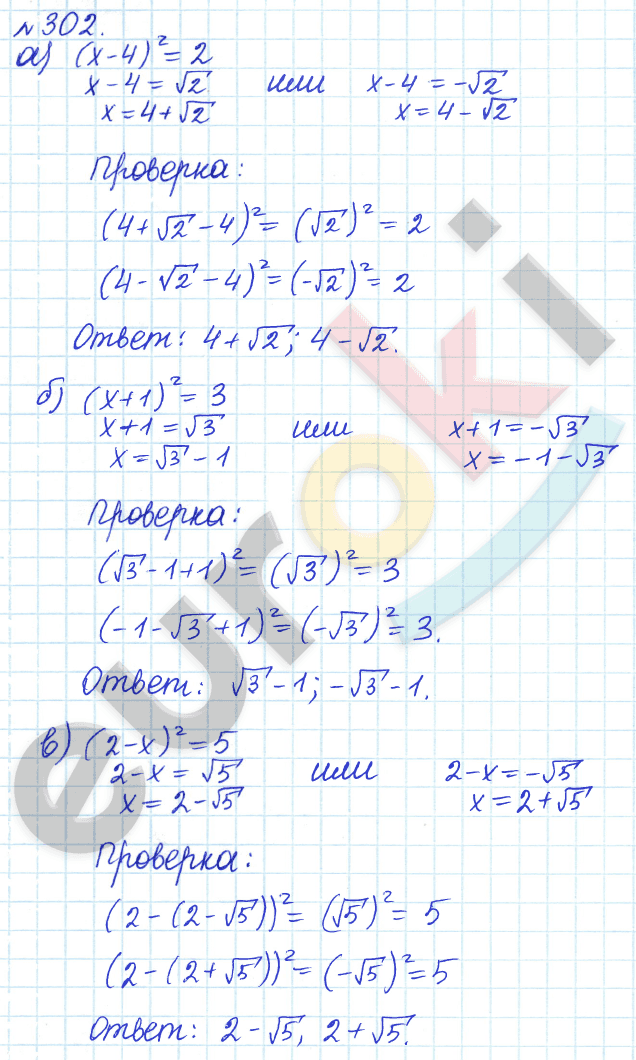 №302.
а) (x-4)² = 2
x-4 = √2 или x-4 = -√2
x = 4+√2 x = 4-√2
Проверка:
(4+√2-4)² = (√2)² = 2
(4-√2-4)² = (-√2)² = 2
Ответ: 4+√2; 4-√2.
б) (x+1)² = 3
x+1 = √3 или x+1 = -√3
x = √3-1 x = -1-√3
Проверка:
(√3-1+1)² = (√3)² = 3
(-1-√3+1)² = (-√3)² = 3.
Ответ: √3-1; -√3-1.
в) (2-x)² = 5
2-x = √5 или 2-x = -√5
x = 2-√5 x = 2+√5
Проверка:
(2-(2-√5))² = (√5)² = 5
(2-(2+√5))² = (-√5)² = 5
Ответ: 2-√5, 2+√5.
euroki